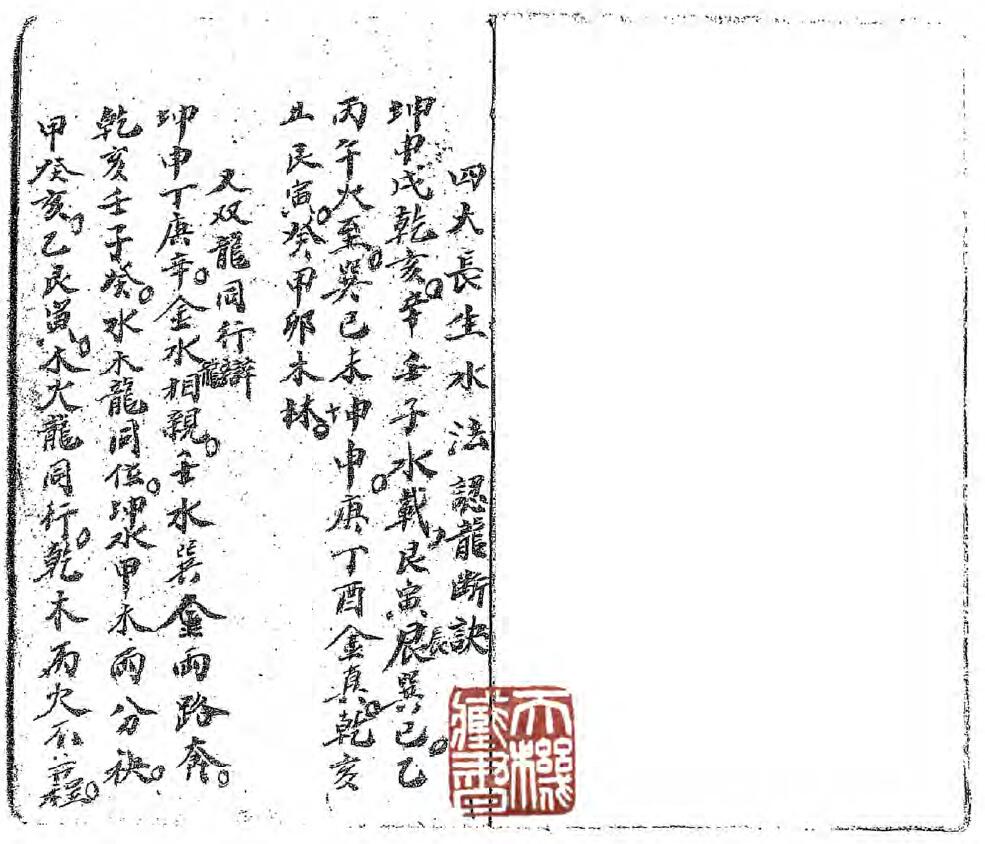 四大長生水法認龍断訣
坤申戌乾亥。辛壬子水載。艮寅辰巽巳。乙
丙午火至。巽巳未坤申。庚丁酉金真。乾亥
丑艮寅。癸甲卯木林。
又双龍同行
坤申丁庚辛。金水相親。壬水巽金両路奔。
乾亥壬子癸。水木龍同位。坤水甲木両分袂。
甲癸亥。乙艮寅。木火龍同行。乾木丙火不
天機
藏書